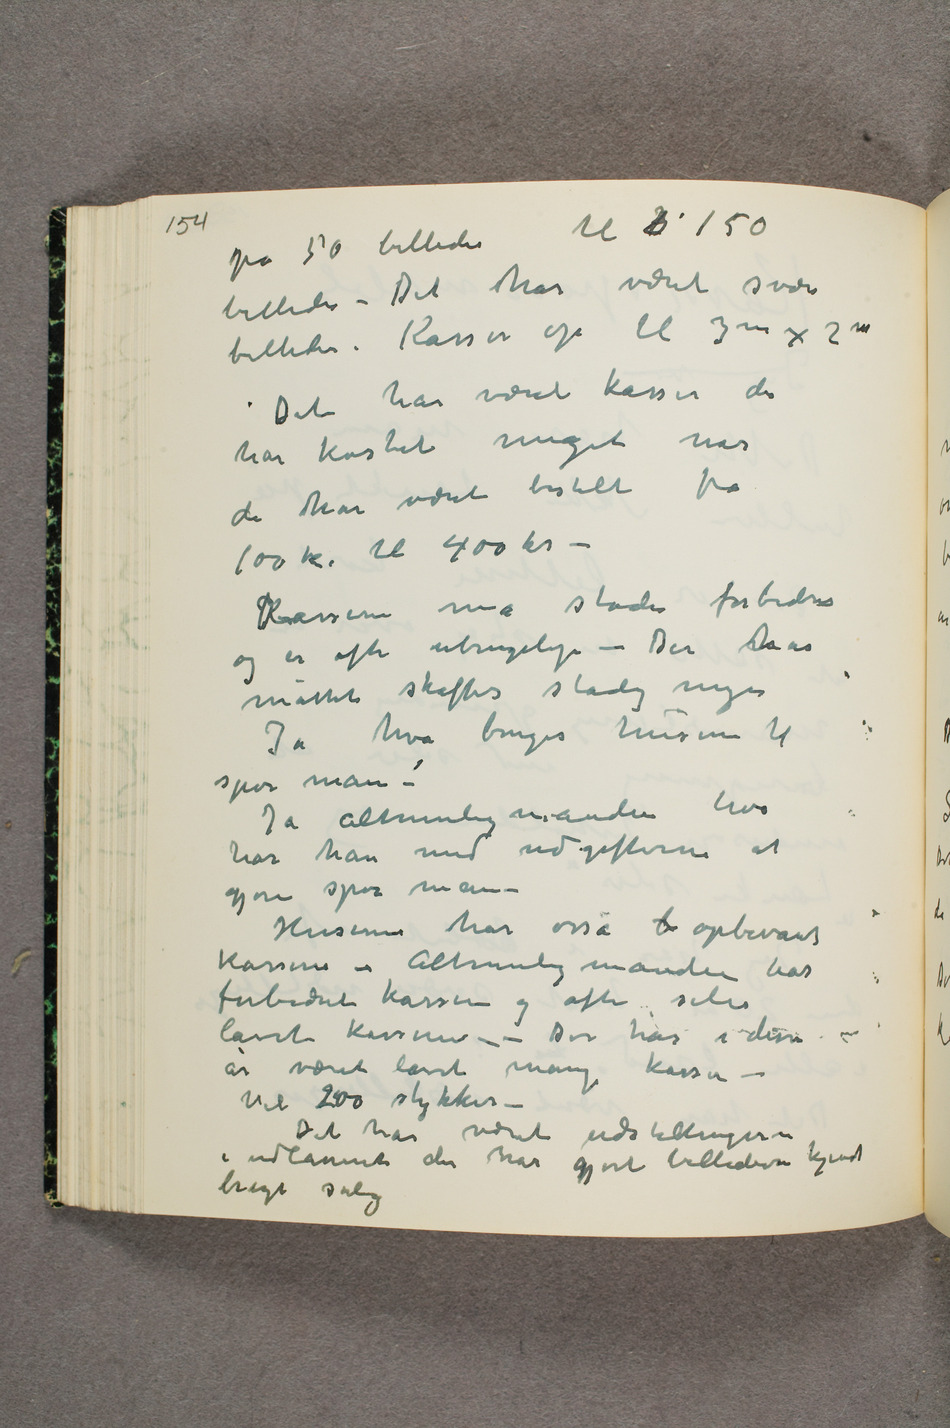 154
på 50 billeder til 150
billeder – Det har været svære
billeder. Kasser op til 3m x 2m
Det har været kasser der
har kostet meget når
de har været bestilt fra
100 kr. til 400 kr –
Kasserne må stadig forbedres
og er ofte ubrugelige – Der har
måttet skaffes stadig nye
Ja hva bruges husene til
spør man –
Ja altmuligmanden hva
har han med udgifterne at
gjøre spør man –
Husene har osså opbevart
kasserne – Altmuligmanden har
forbedret kassen og ofte selv
lavet kasserne – Der har i disse
år været lavet mange kasser –
Vel 200 stykker –
Det har været udstillingerne
i udlannet der har gjort billederne kjendt
bragt salg